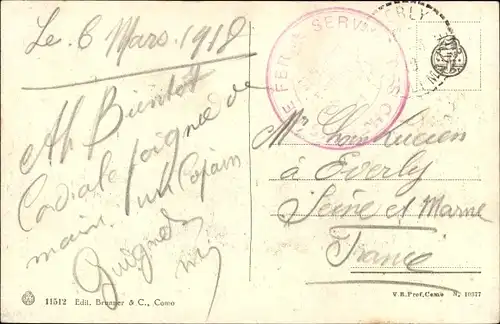 Le 6 Mars 1918
Ah Bientot
Cordiale poignée de
main. un Copain
Guignet
EVERLY
SERV
DE FER
Mr Lucien
à Everly
Seine et Marne
France
11512 Edit. Brunner & C., Como
V.B.Prof.Como N. 10377